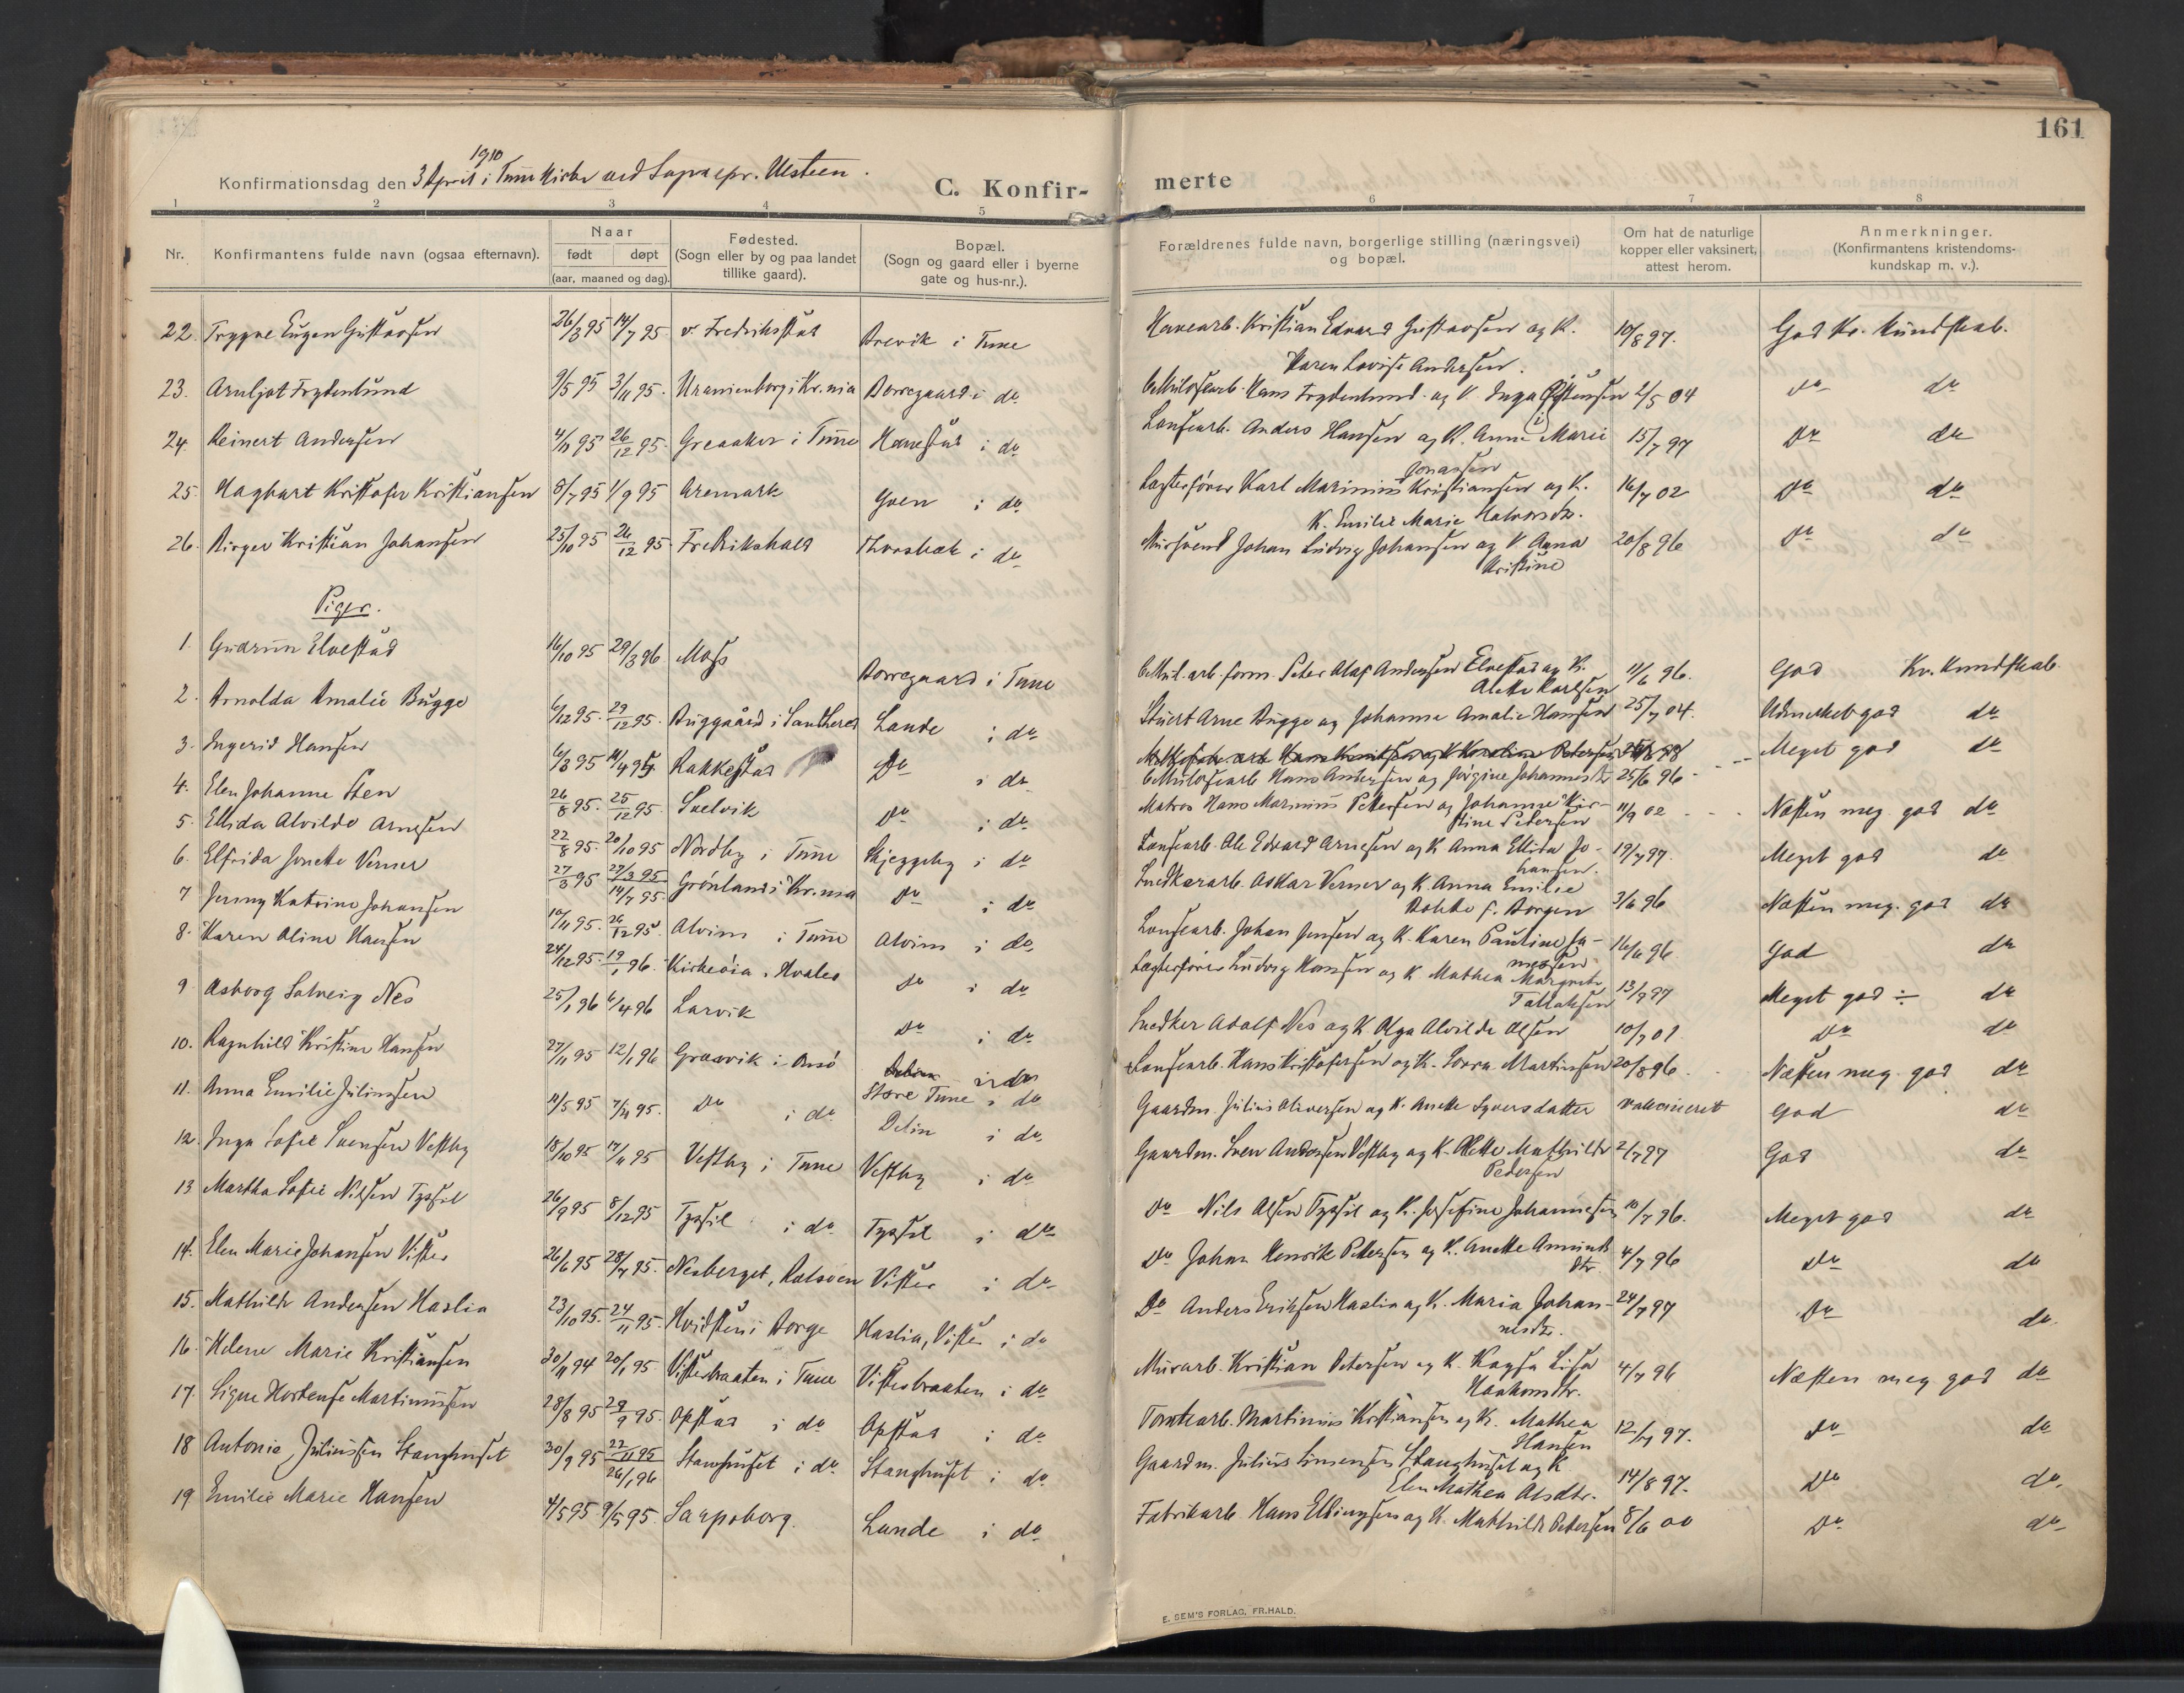 161
1910
Konfirmationsdag den 3 April i Tune Kirke ved Sognepr. Ulsteen.
C. Konfir-
merte
1 2 3 4 5 6 7 8
Nr.
Konfirmantens fulde navn (ogsaa efternavn).
Naar
født døpt
(aar, maaned og dag).
Fødested.
(Sogn eller by og paa landet
tillike gaard).
Bopæl.
(Sogn og gaard eller i byerne
gate og hus-nr.).
Forældrenes fulde navn, borgerlige stilling (næringsvei)
og bopæl.
Om hat de naturlige
kopper eller vaksinert,
attest herom.
Anmerkninger.
(Konfirmantens kristendoms-
kundskap m. v.).
22. Trygve Eugen Gustavsen 26/3 95 14/7 95 v. Fredriksstad Brevik i Tune Havearb. Kristian Edvard Gustavsen og K. 10/8 97. God Kr. kundskab.
Karen Lovise Andersen.
23. Arnljot Frydenlund 9/5 95 3/11 95. Uranienborg i Kr.nia Borregaard i do Hans Frydenlund og K. Inga 2/5 04 do do
24. Reinert Andersen 26/12 95. Greaaker i Tune Hanestad i do Løsearb. Anders Hansen og K. Anne Marie 15/7 97 do do
Jonassen
25. Hagbart Kristofer Kristiansen 8/7 95 1/9 95 Aremark i do Lægterfører Karl Marinius Kristiansen og K. 16/7 02 do do
K. Emilie Marie Halvorsdtr.
26. Birger Kristian Johansen 25/10 95 26/12 95. Fredrikshald Thorsbæk i do Mursvend Johan Ludvig Johansen og K. Anna 20/8 96 do do
Kristine
Piger.
1. Gudrun Elvestad 16/10 95 29/3 96 Moss Borregaard i Tune Peter Olaf Andersen Elvestad og K. 11/6 96. God Kr. kundskab.
Alette Karlsen
2. Arnolda Amalie Bugge 6/12 95. 29/12 95. Lande i do Stuert Arne Bugge og Johanne Amalie Hansen 25/7 04. Udmerket god do
3. Ingerid Hansen 6/3 95 Rakkestad do i do Meget god do
Hans Andersen og Jørgine Johannesdtr 25/6 96
4. Elen Johanne Sten 26/8 95. 25/12 95. Svelvik do i do Matros Hans Marinius Pettersen og Johanne Kir- 11/9 02 Næsten meg. god do
stine Petersen
5. Ellida Alvilde Arnesen 22/8 95. 20/10 95 Nordby i Tune Skjeggeby i do Løsearb. Ole Edvard Arnesen og K. Anna Ellida Jo- 19/7 97. Meget god do
hansen.
6. Elfrida Jonette Verner 27/3 95 27/3 95 14/7 95. Grønland i Kr.nia do i do Snedkerarb. Oskar Verner og K. Anna Emilie 3/6 96 Næsten meg. god do
f. Borgen
7 Jenny Katrine Johansen 10/11 95. 26/12 95. Alvim i Tune Alvim i do Løsearb. Johan Jensen og K. Karen Pauline Ja- 16/6 96 God do
8. Karen Oline Hansen 24/12 95. 19/1 96. Kirkeøia, Hvaler do i do Lægterfører Ludvig Hansen og K. Mathea Margrete 13/9 97 Meget god ÷ do
Tallaksen
9 Asborg Solveig Nes 25/1 96 6/4 96 Larvik do i do Snedker Adolf Nes og K. Olga Alvilde Olsen 10/7 01. do do
10. Ragnhild Kristine Hansen 27/11 95 12/1 96 Græsvik i Onsø Løsearb. Hans Kristofersen og K. Lovra Martinsen 20/8 96. Næsten meg. god do
Store Tune i do
11. Anna Emilie Juliussen 7/11 95. do i do Delin i do. Gaardm. Julius Oliversen og K. Anette Syversdatter vakcineret God do
12. Inga Sofie Svensen Vestby 18/10 95 17/11 95 Vestby i Tune Vestby i do Gaardm. Sven Andersen Vestby og K. Alette Mathilde 2/7 97 God do
Pedersen
13 Martha Sofie Nilsen Tyssil 26/9 95 8/12 95 Tyssil i do Tyssil i do do Nils Olsen Tyssil og K. Josefine Johannesen 10/7 96. Meget god do
14. Elen Marie Johansen Vister 26/6 95 28/7 95. Nesberget, Rolsøen Vister i do do Johan Henrik Pettersen og K. Anette Amunds 4/7 96 do do
dtr.
15. Mathilde Andersen Haslia 23/10 95. 24/11 95. Hvidsten i Borge Haslia, Vister i do do Anders Eriksen Haslia og K. Maria Johan- 24/7 97 do do
nesdtr.
16. Helene Marie Kristiansen 30/11 94 20/1 95 Visterbraaten i Tune Visterbraaten i do Murarb. Kristian Petersen og K. Kaysa Lisa 4/7 96 Næsten meg god do
Haakonsdtr.
17. Signe Hortense Martinussen 28/8 95 29/9 95. Opstad i do Opstad i do Tomtearb. Martinius Kristiansen og K. Mathea 12/7 97. do do
Hansen
18 Antonie Juliussen Stanghuset 30/9 95 22/11 95 26/1 96 Stanghuset i do Stanghuset i do Gaardm. Julius Simensen Stanghuset og K 14/8 97. do do
Elen Mathea Olsdtr.
19 Emilie Marie Hansen 4/5 95. 9/5 95. Sarpsborg. Lande i do Fabrikarb. Hans Ellingsen og K. Mathilde Petersen 8/6 00 do do
E. SEM'S FORLAG, FR.HALD.